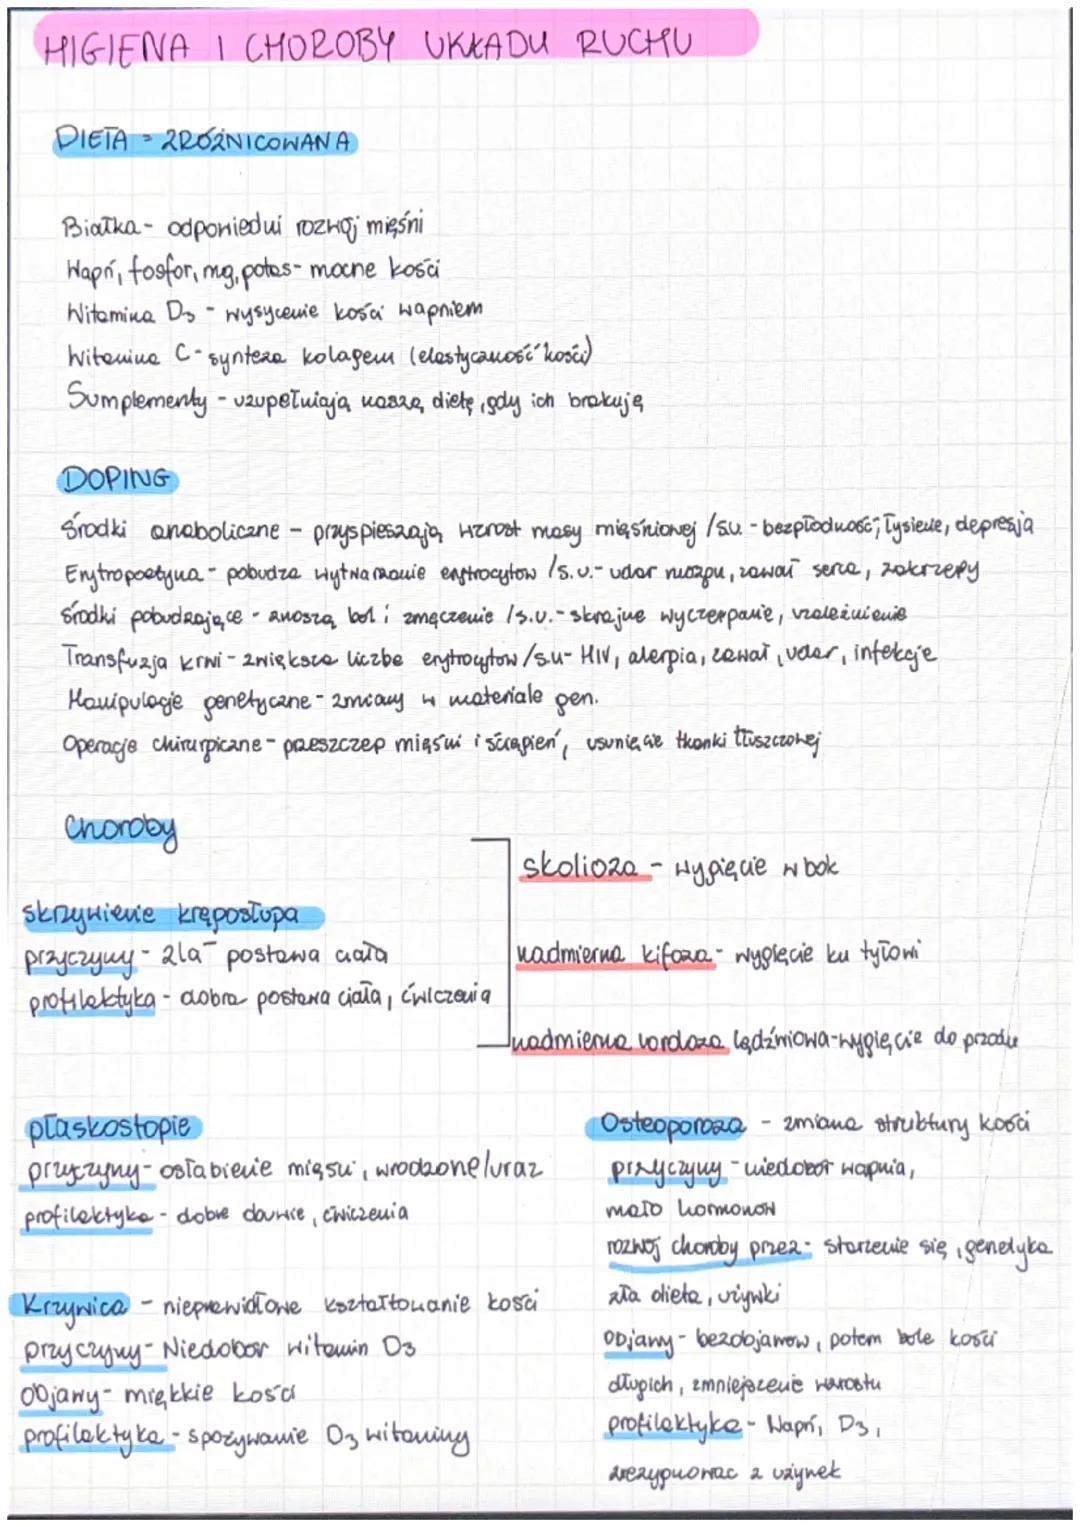 HIGIENA I CHOROBY UKŁADU RUCHU
DIETA = ZRÓŻNICOWANA
Białka - odpowiedni rozwój mięśni
Wapń, fosfor, mg, potas - mocne kości
Witamina D3 - wysycenie kości wapniem
Witamina C - synteza kolagenu (elastyczność kości)
Sumplementy - uzupełniają naszą dietę, gdy ich brakuje
DOPING
Środki anaboliczne - przyspieszają wzrost masy mięśniowej /s.u. - bezpłodność, łysienie, depresja
Erytropoetyna - pobudza wytwarzanie erytrocytów /s.u. - udar mózgu, zawał serca, zakrzepy
środki pobudzające - znoszą ból i zmęczenie /s.u. - skrajne wyczerpanie, uzależnienie
Transfuzja krwi - zwiększa liczbe erytrocytów /s.u - HIV, alergia, zawał, udar, infekcje
Manipulacje genetyczne - zmiany w materiale gen.
Operacje chirurgiczne - przeszczep mięśni i ścięgien, usunięcie tkanki tłuszczowej
Choroby
skolioza - wygięcie w bok
skrzywienie kręgosłupa
przyczyny - zła postawa ciała
nadmierna kifoza - wygięcie ku tyłowi
profilaktyka - dobra postawa ciała, ćwiczenia
nadmierna lordoza lędźwiowa - wygięcie do przodu
płaskostopie
przyczyny - osłabienie mięśni, wrodzone/uraz
profilaktyka - dobre , ćwiczenia
Osteoporoza - zmiana struktury kości
przyczyny - niedobór wapnia,
mało hormonów
rozwój choroby przez - starzenie się, genetyka
zła dieta, używki
objawy - bezobjawow, potem bóle kości
długich, zmniejszenie wzrostu
profilaktyka - Wapń, D3,
zrezygnować z używek
Krzywica - nieprawidłowe kształtowanie kości
przyczyny - Niedobór witamin D3
Objawy - miękkie kości
profilaktyka - spożywanie D3 witaminy